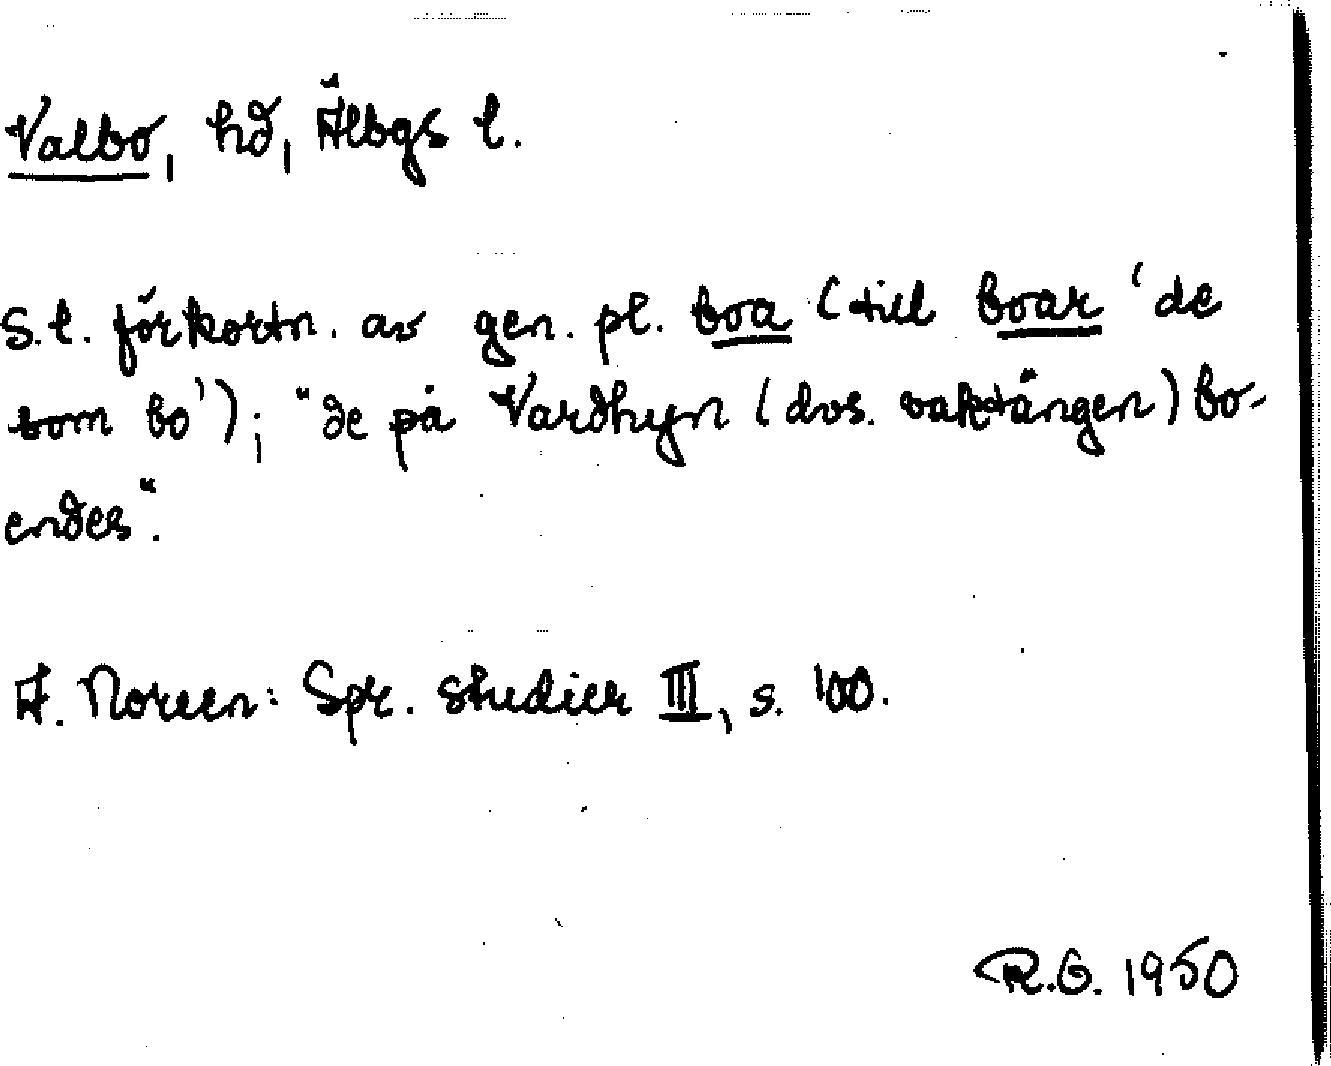 Valbo, hd, Älbgs l.
S.l. förkortn. av gen. pl. boa (till boar 'de
som bo'); "de på Vardhyn (dvs. vaktängen) bo-
endes".
A. Noreen: Spr. studier III, s. 100.
R.G. 1950